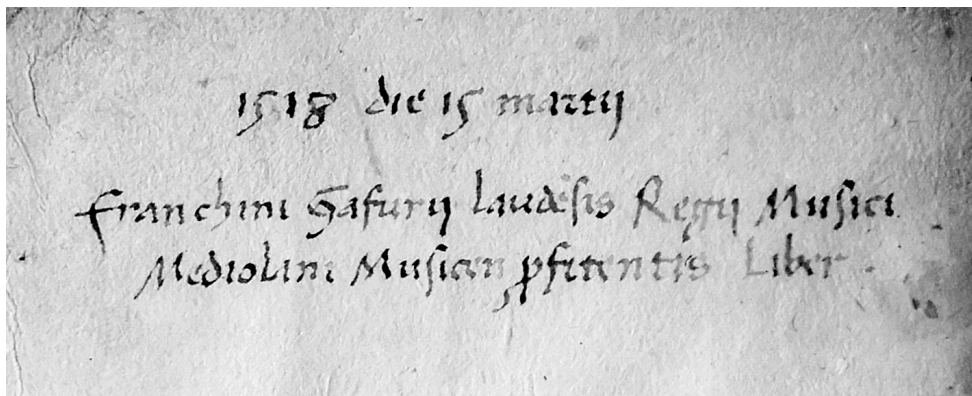 1518 die 15 martij
Franchini Gafurij laudēsis Regij Musici
Mediolani Musicen ꝓfitentis Liber .